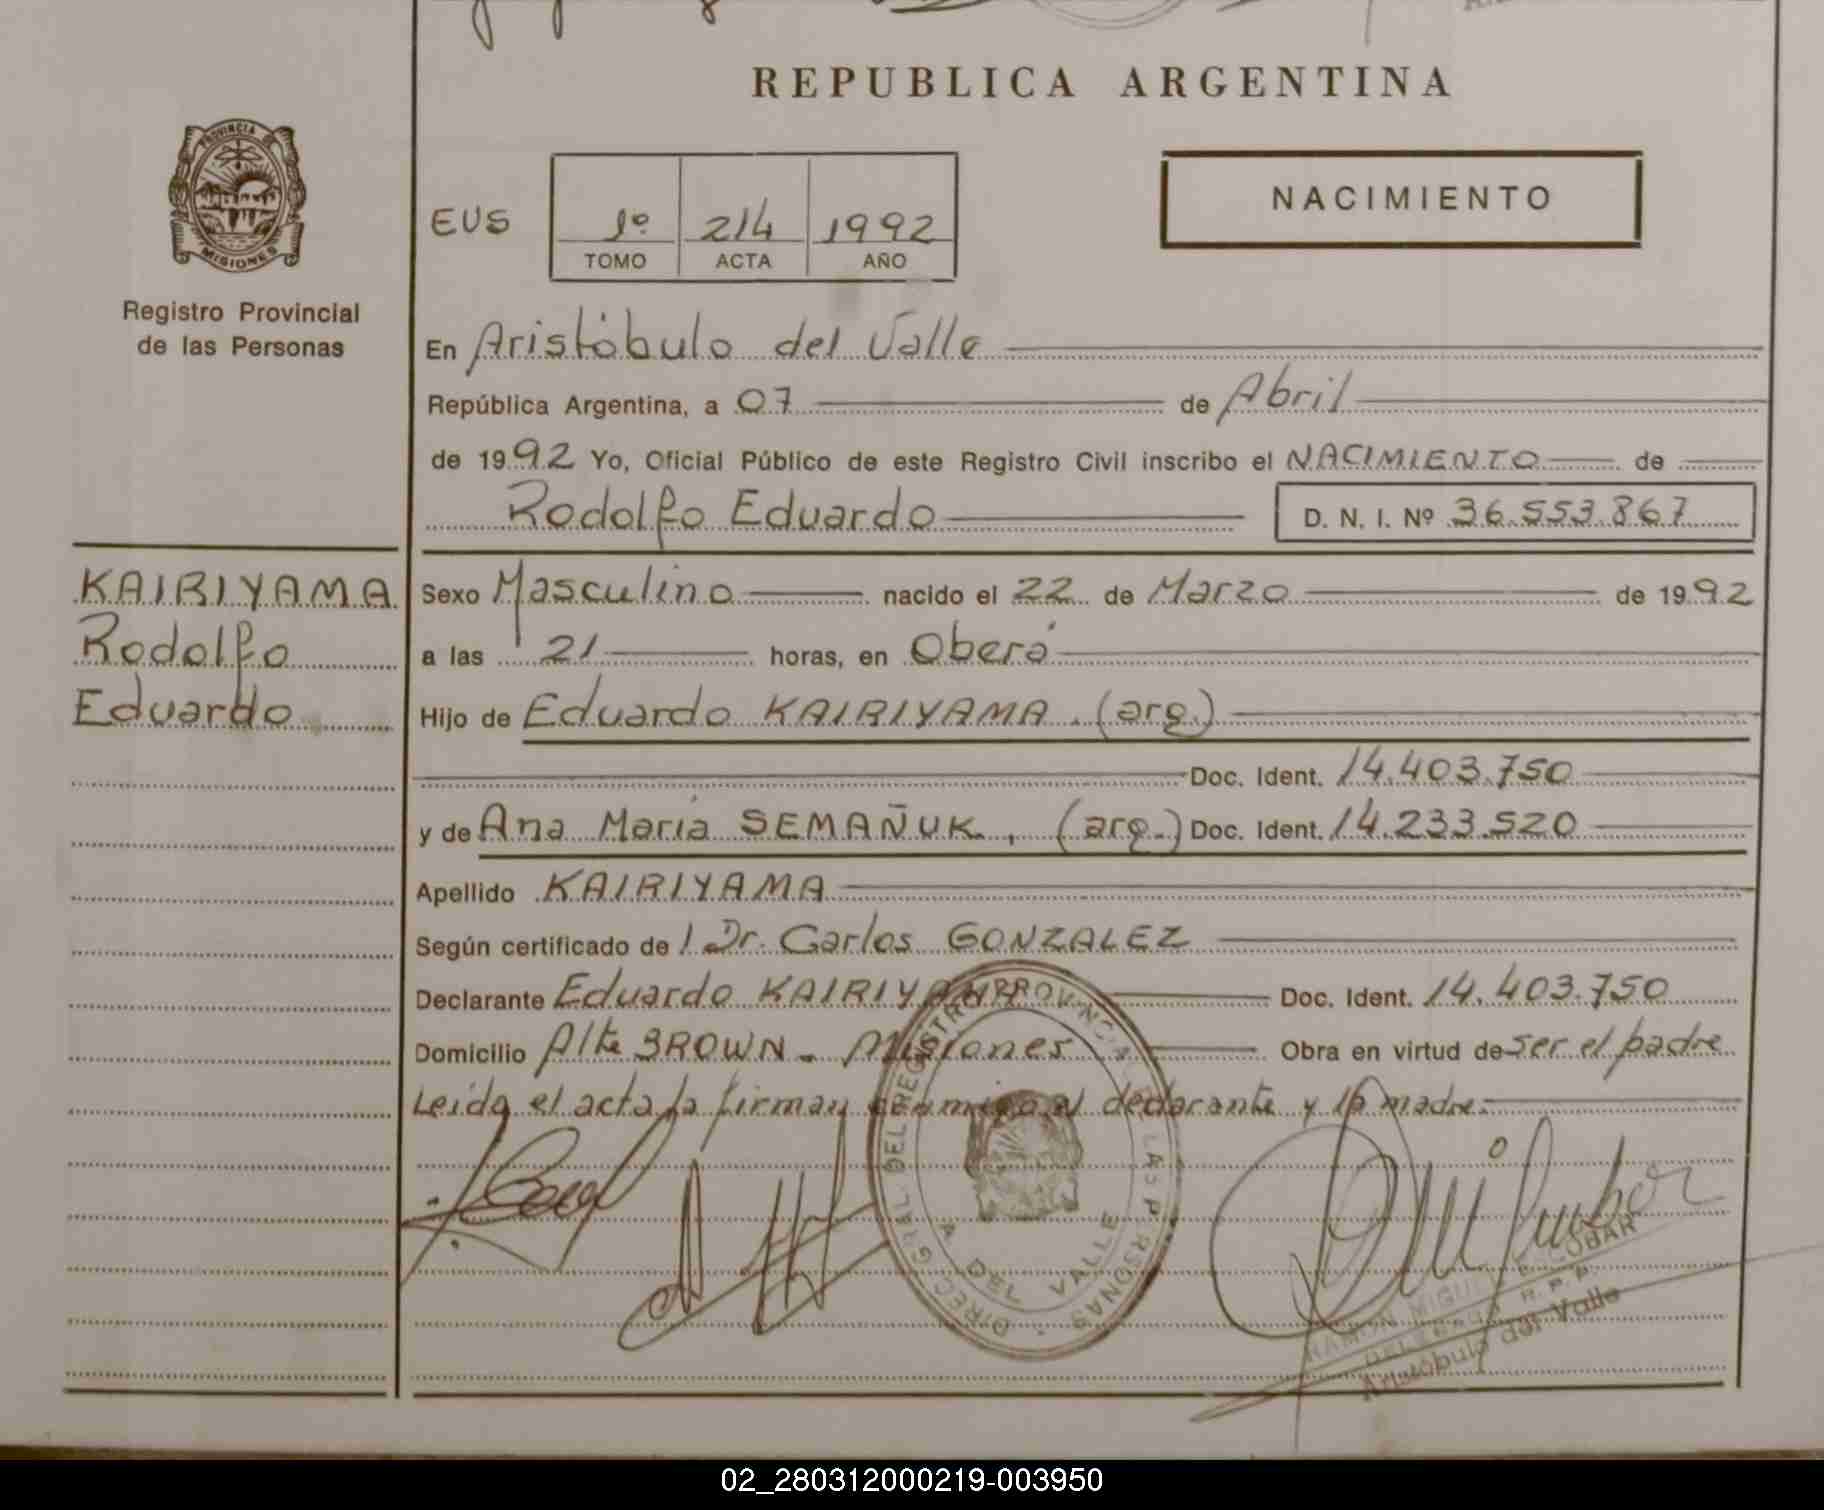 REPUBLICA ARGENTINA
PROVINCIA DE
MISIONES
Registro Provincial
de las Personas
NACIMIENTO
EUS
1º 214 1992
TOMO ACTA AÑO
En Aristóbulo del Valle
República Argentina, a 07 de Abril
de 1992 Yo, Oficial Público de este Registro Civil inscribo el NACIMIENTO de
Rodolfo Eduardo D. N. I. Nº 36.553.867
KAIRIYAMA
Rodolfo
Eduardo
Sexo Masculino nacido el 22 de Marzo de 1992
a las 21 horas, en Oberá
Hijo de Eduardo KAIRIYAMA. (arg.)
Doc. Ident. 14.403.750
y de Ana María SEMAÑUK, (arg.) Doc. Ident. 14.233.520
Apellido KAIRIYAMA
Según certificado de l Dr. Carlos GONZALEZ
Declarante Eduardo KAIRIYAMA Doc. Ident. 14.403.750
Domicilio Alte BROWN - Misiones Obra en virtud de ser el padre
Leída el acta la firman conmigo el declarante y la madre.
DIREC. GRAL. DEL REGISTRO PROVINCIAL DE LAS PERSONAS
A DEL VALLE
RAMON MIGUEL ESCOBAR
DELEGADO R. P. P.
Aristóbulo del Valle
02_280312000219-003950